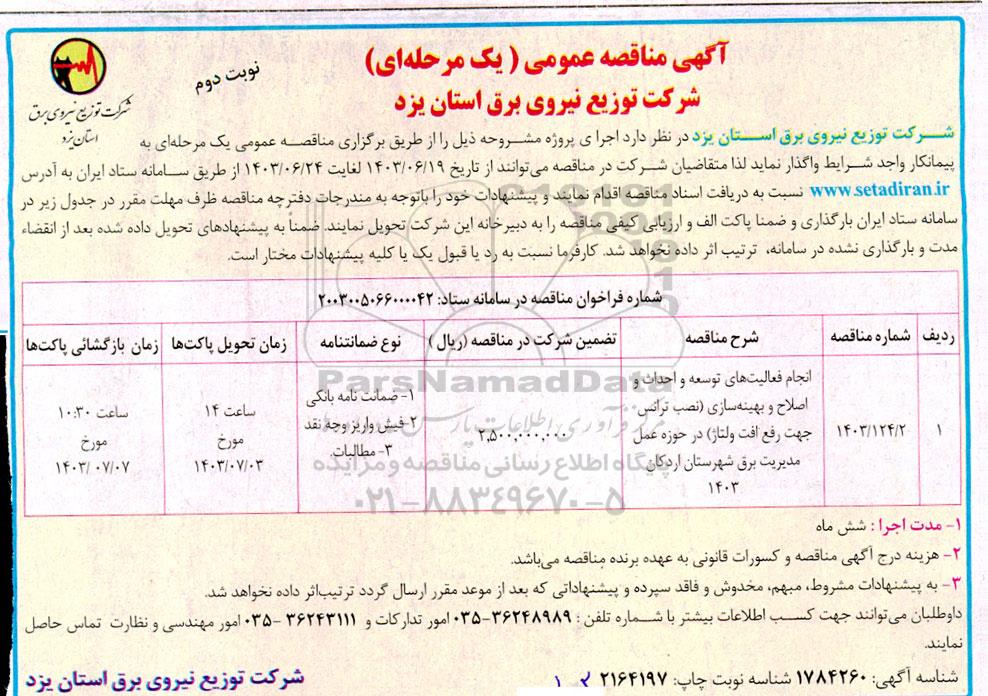 آگهی مناقصه عمومی ( یک مرحله‌ای)
شرکت توزیع نیروی برق استان یزد
نوبت دوم
شرکت توزیع نیروی برق
استان یزد
شرکت توزیع نیروی برق استان یزد در نظر دارد اجرا ی پروژه مشروحه ذیل را از طریق برگزاری مناقصه عمومی یک مرحله‌ای به
پیمانکار واجد شرایط واگذار نماید لذا متقاضیان شرکت در مناقصه می‌توانند از تاریخ ۱۴۰۳/۰۶/۱۹ لغایت ۱۴۰۳/۰۶/۲۴ از طریق سامانه ستاد ایران به آدرس
www.setadiran.ir نسبت به دریافت اسناد مناقصه اقدام نمایند و پیشنهادات خود را باتوجه به مندرجات دفترچه مناقصه ظرف مهلت مقرر در جدول زیر در
سامانه ستاد ایران بارگذاری و ضمنا پاکت الف و ارزیابی کیفی مناقصه را به دبیرخانه این شرکت تحویل نمایند. ضمناً به پیشنهادهای تحویل داده شده بعد از انقضاء
مدت و بارگذاری نشده در سامانه، ترتیب اثر داده نخواهد شد. کارفرما نسبت به رد یا قبول یک یا کلیه پیشنهادات مختار است.
شماره فراخوان مناقصه در سامانه ستاد: ۲۰۰۳۰۰۵۰۶۶۰۰۰۰۴۲
ردیف شماره مناقصه شرح مناقصه تضمین شرکت در مناقصه (ریال ) نوع ضمانتنامه زمان تحویل پاکت‌ها زمان بازگشائی پاکت‌ها
۱ ۱۴۰۳/۱۲۴/۲
انجام فعالیت‌های توسعه و احداث و
اصلاح و بهینه‌سازی (نصب ترانس
جهت رفع افت ولتاژ) در حوزه عمل
مدیریت برق شهرستان اردکان
۱۴۰۳
۲,۵۰۰,۰۰۰,۰۰۰
۱- ضمانت نامه بانکی
۲-فیش واریز وجه نقد
۳- مطالبات.
ساعت ۱۴
مورخ
۱۴۰۳/۰۷/۰۳
ساعت ۱۰:۳۰
مورخ
۱۴۰۳/ ۰۷/۰۷
ParsNamadData
مرکز فرآوری اطلاعات پارس
پایگاه اطلاع رسانی مناقصه و مزایده
۰۲۱-۸۸۳۴۹۶۷۰-۵
۱- مدت اجرا : شش ماه
۲- هزینه درج آگهی مناقصه و کسورات قانونی به عهده برنده مناقصه می‌باشد.
۳- به پیشنهادات مشروط، مبهم، مخدوش و فاقد سپرده و پیشنهاداتی که بعد از موعد مقرر ارسال گردد ترتیب‌اثر داده نخواهد شد.
داوطلبان می‌توانند جهت کسب اطلاعات بیشتر با شماره تلفن : ۰۳۵-۳۶۲۴۸۹۸۹ امور تدارکات و ۳۶۲۴۳۱۱۱ -۰۳۵ امور مهندسی و نظارت تماس حاصل
نمایند.
شناسه آگهی: ۱۷۸۴۲۶۰ شناسه نوبت چاپ: ۲۱۶۴۱۹۷
شرکت توزیع نیروی برق استان یزد